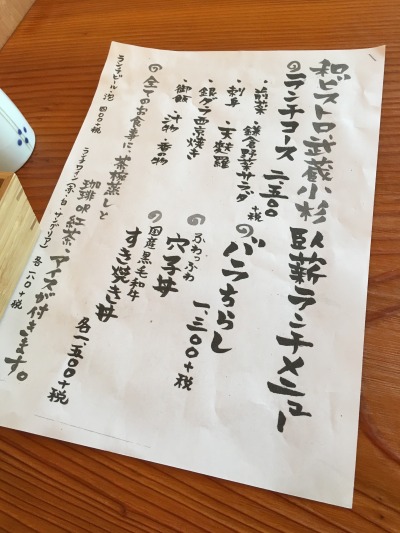 和ビストロ武蔵小杉 臥薪 ランチメニュー
◎ランチコース 二、五〇〇+税
・前菜 ・鎌倉野菜サラダ
・刺身 ・天麩羅
・銀ダラ西京焼き
・御飯 汁物 香物
◎バラちらし
◎ふわっふわ穴子丼 一、三〇〇+税
◎国産黒毛和牛すき焼き丼 各一、五〇〇+税
◎全てのお食事に、茶碗蒸しと
珈琲or紅茶・アイスが付きます。
ランチワイン(赤・白・サングリア)各
ランチビール 泡 四〇〇+税